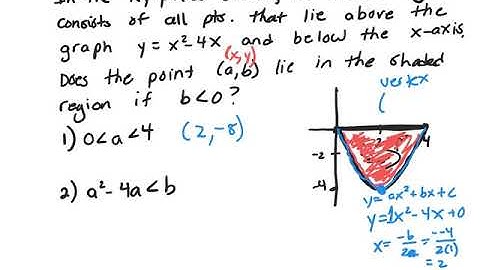 consists of all pts. that lie above the
graph y = x²-4x and below the x-axis.
(x,y)
Does the point (a,b) lie in the shaded
region if b<0?
1) 0<a<4 (2,-8)
2) a²-4a<b
vertex
(
2
4
-2
-4
y=ax²+bx+c
y=1x²-4x+0
x = -b/2a = --4/2(1)
= 2